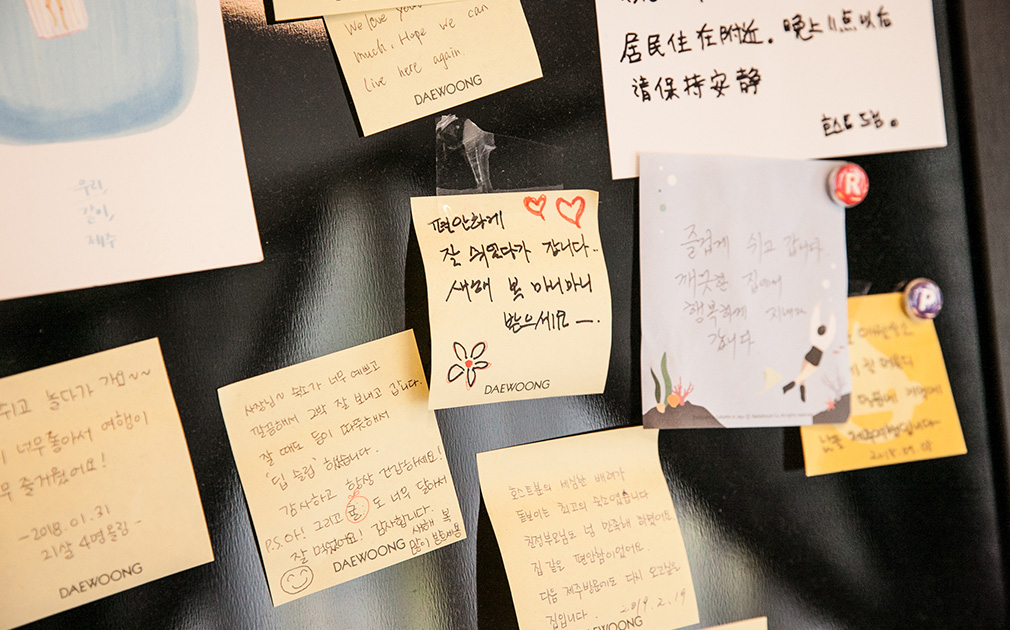 We love you
much. Hope we can
live here again
DAEWOONG
居民住在附近。晚上11点以后
请保持安静
호스트 드림。
우리,
같이,
제주
편안하게
잘 쉬었다가 갑니다.
새해 복 마니마니
받으세요
DAEWOONG
즐겁게 쉬고 갑니다
깨끗한 집에서
행복하게 지내다
갑니다
R
P
2018.09.08
쉬고 놀다가 가요~~
너무좋아서 여행이
즐거웠어요!
-2018.01.31
DAEWOONG
사장님~ 숙소가 너무 예쁘고
깔끔해서 2박 잘 보내고 갑니다.
잘 때도 등이 따뜻해서
'딥 슬립' 했습니다.
감사하고 항상 건강하세요!
P.S.아! 그리고 귤도 너무 달아서
잘 먹었어요! 감사합니다.
새해 복
많이 받으세용
DAEWOONG
호스트분의 세심한 배려가
돋보이는 최고의 숙소였습니다
친정부모님도 넘 만족해 하셨어요
집 같은 편안함이었어요.
다음 제주방문에도 다시 오고싶은
집입니다. 2019.2.19
DAEWOONG